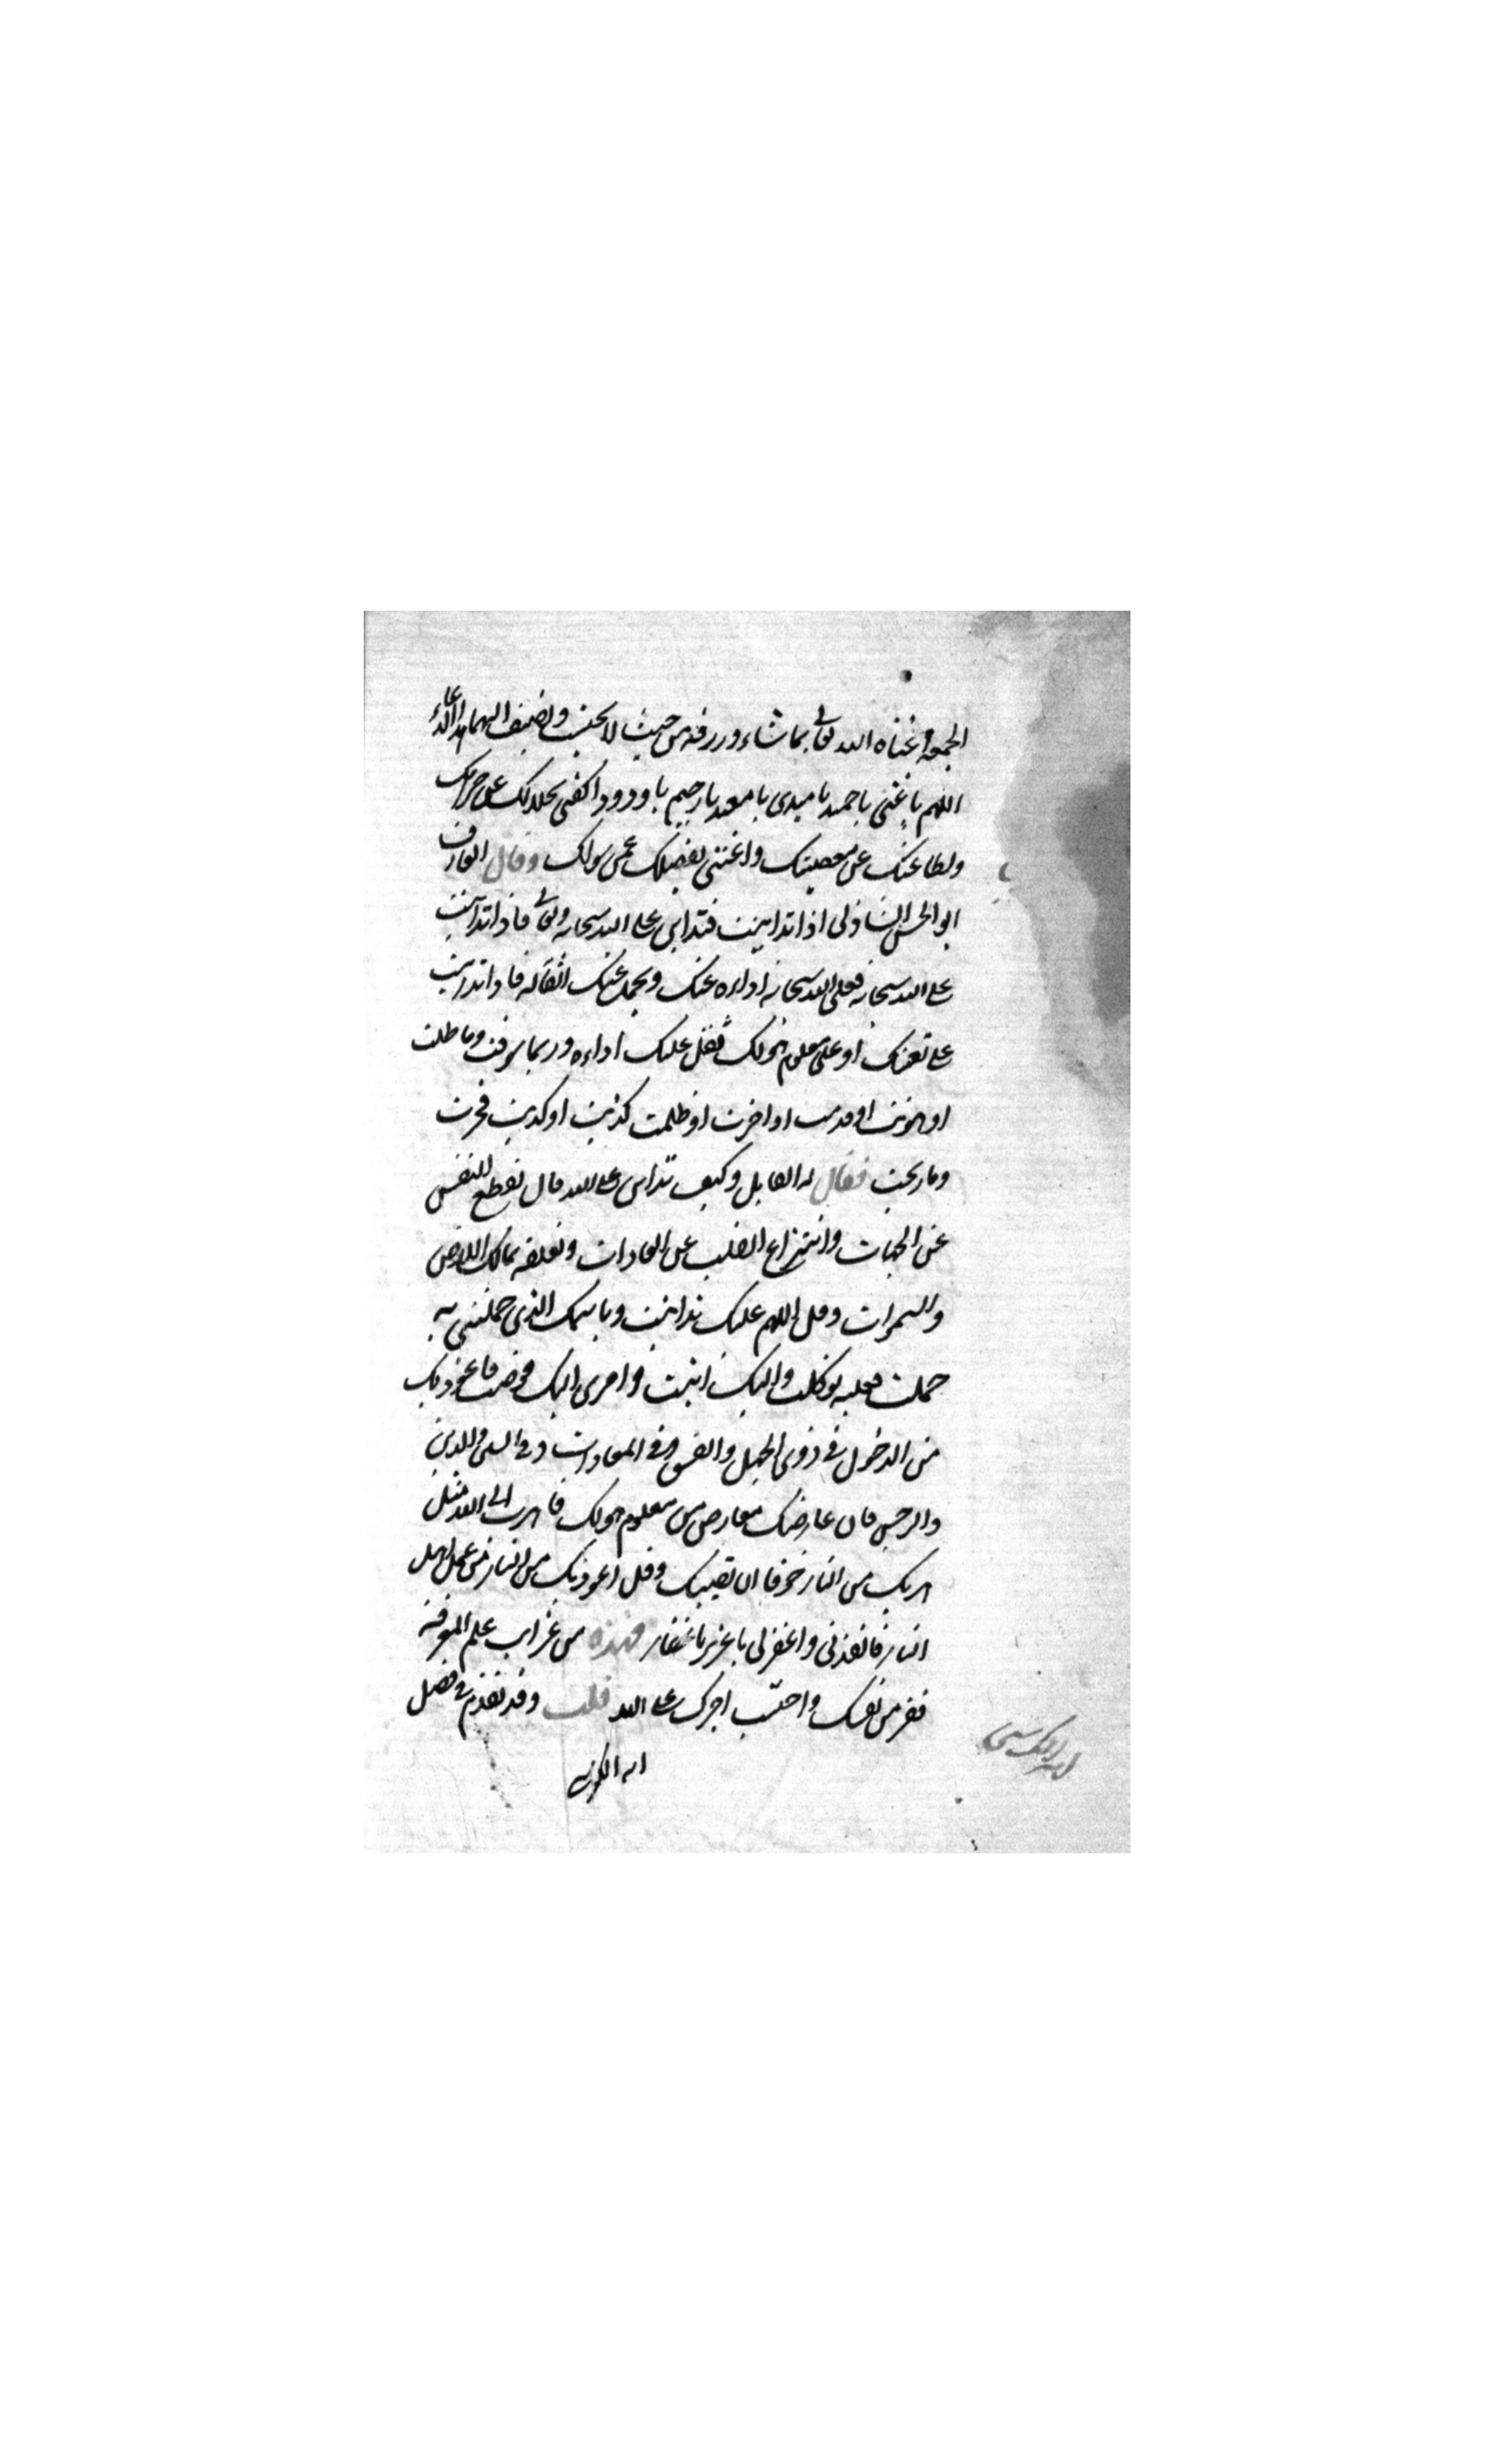 الجمعة اغناه الله تعالى بما شاء ورزقه من حيث لا يحتسب ويضيف اليهما هذا الدعاء
اللهم يا غني يا حميد يا مبدي يا معيد يا رحيم يا ودود اكفني بحلالك عن حرامك
وبطاعتك عن معصيتك واغنني بفضلك عمن سواك وقال العارف
ابو الحسن الشاذلي اذا تداينت فتداين على الله سبحانه وتعالى فاذا تداينت
على الله سبحانه فعلى الله سبحانه اداؤه عنك ويحمل عنك اثقاله فاذا تداينت
على نفسك او على معلوم هو لك ثقل عليك اداءه وربما سوفت وما طلت
او هونت او اخرت او ظلمت كذبت او كذبت فخرت
وما ربحت فقال له القايل وكيف تداين على الله قال بقطع النفس
عن الجهات وانتزاع القلب عن العادات وتعلقه بمالك الارض
والسموات وقل اللهم عليك تداينت وباسمك الذي حملتني به
حملت وعليه توكلت واليك انبت وامري اليك فوضت فاعوذ بك
من الدخول في ذوي الجهل والفسق وفي المعادات وفي والدين
والرجس فان عارضك معارض من معلوم هو لك فاهرب الى الله مثل
هربك من النار خوفا ان تصيبك وقل اعوذ بك من النار من عمل اهل
النار فانقذني واغفر لي يا عزيز يا غفار فهذه من غرايب علم المعرفة
ففر من نفسك واحتسب اجرك على الله قلت وقد تقدم في فضل
اية الكرسي